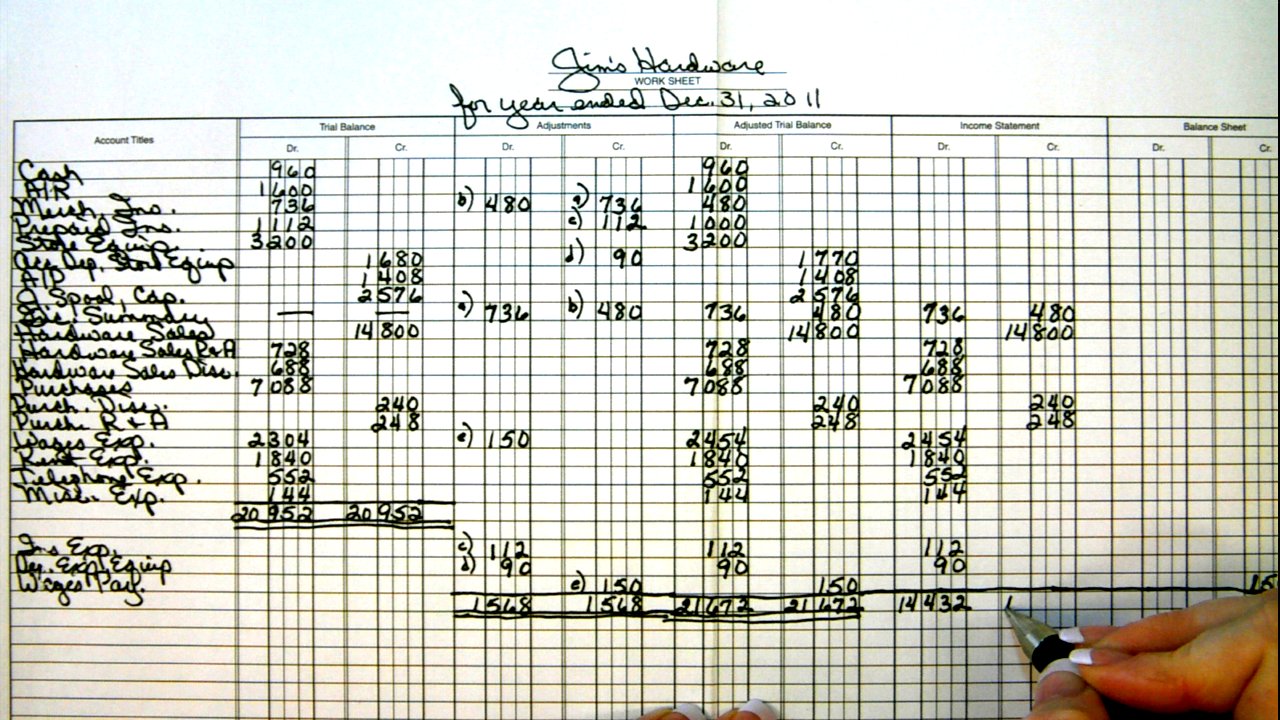 Jim's Hardware
WORK SHEET
for year ended Dec. 31, 2011
Account Titles Trial Balance Adjustments Adjusted Trial Balance Income Statement Balance Sheet
Dr. Cr. Dr. Cr. Dr. Cr. Dr. Cr. Dr. Cr.
Cash 960 960
A/R 1600 1600
Merch. Ins. 736 b) 480 a) 736 480
Prepaid Ins. 1112 c) 112 1000
Store Equip. 3200 3200
Acc. Dep. Store Equip 1680 d) 90 1770
A/P 1408 1408
J. Spool, Cap. 2576 2576
Inc. Summary — — a) 736 b) 480 736 480 736 480
Hardware Sales 14800 14800 14800
Hardware Sales R+A 728 728 728
Hardware Sales Disc. 688 688 688
Purchases 7088 7088 7088
Purch. Disc. 240 240 240
Purch. R+A 248 248 248
Wages Exp. 2304 e) 150 2454 2454
Rent Exp. 1840 1840 1840
Telephone Exp. 552 552 552
Misc. Exp. 144 144 144
20952 20952
Ins Exp. c) 112 112 112
Dep. Exp. Equip d) 90 90 90
Wages Pay. e) 150 150 15
1568 1568 21672 21672 14432 1